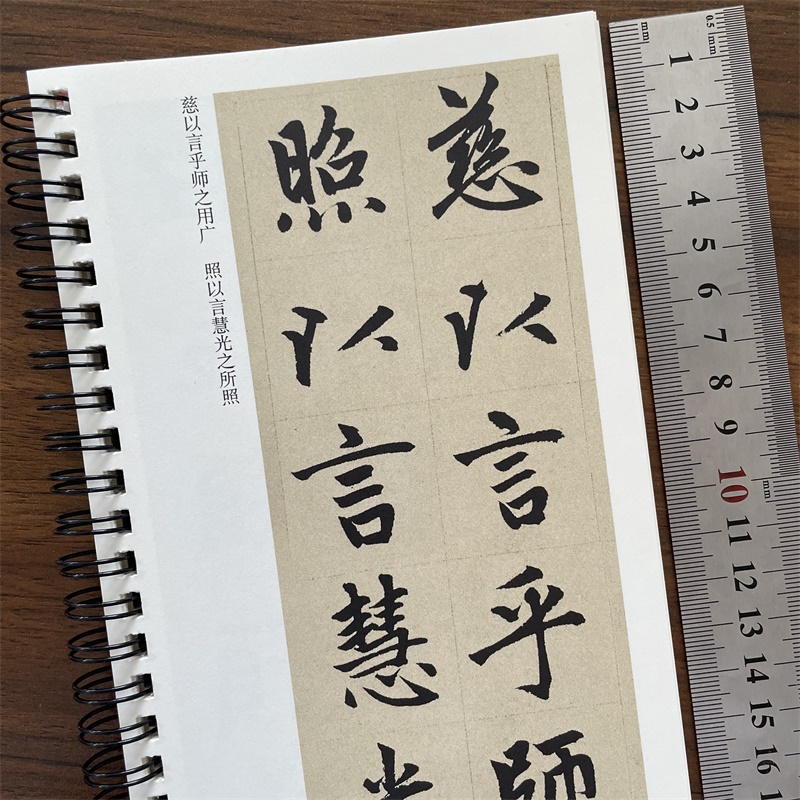 慈以言乎師
照以言慧光
慈以言乎师之用广 照以言慧光之所照
0.5 mm
mm
1 2 3 4 5 6 7 8 9 10 11 12 13 14 15 16
mm